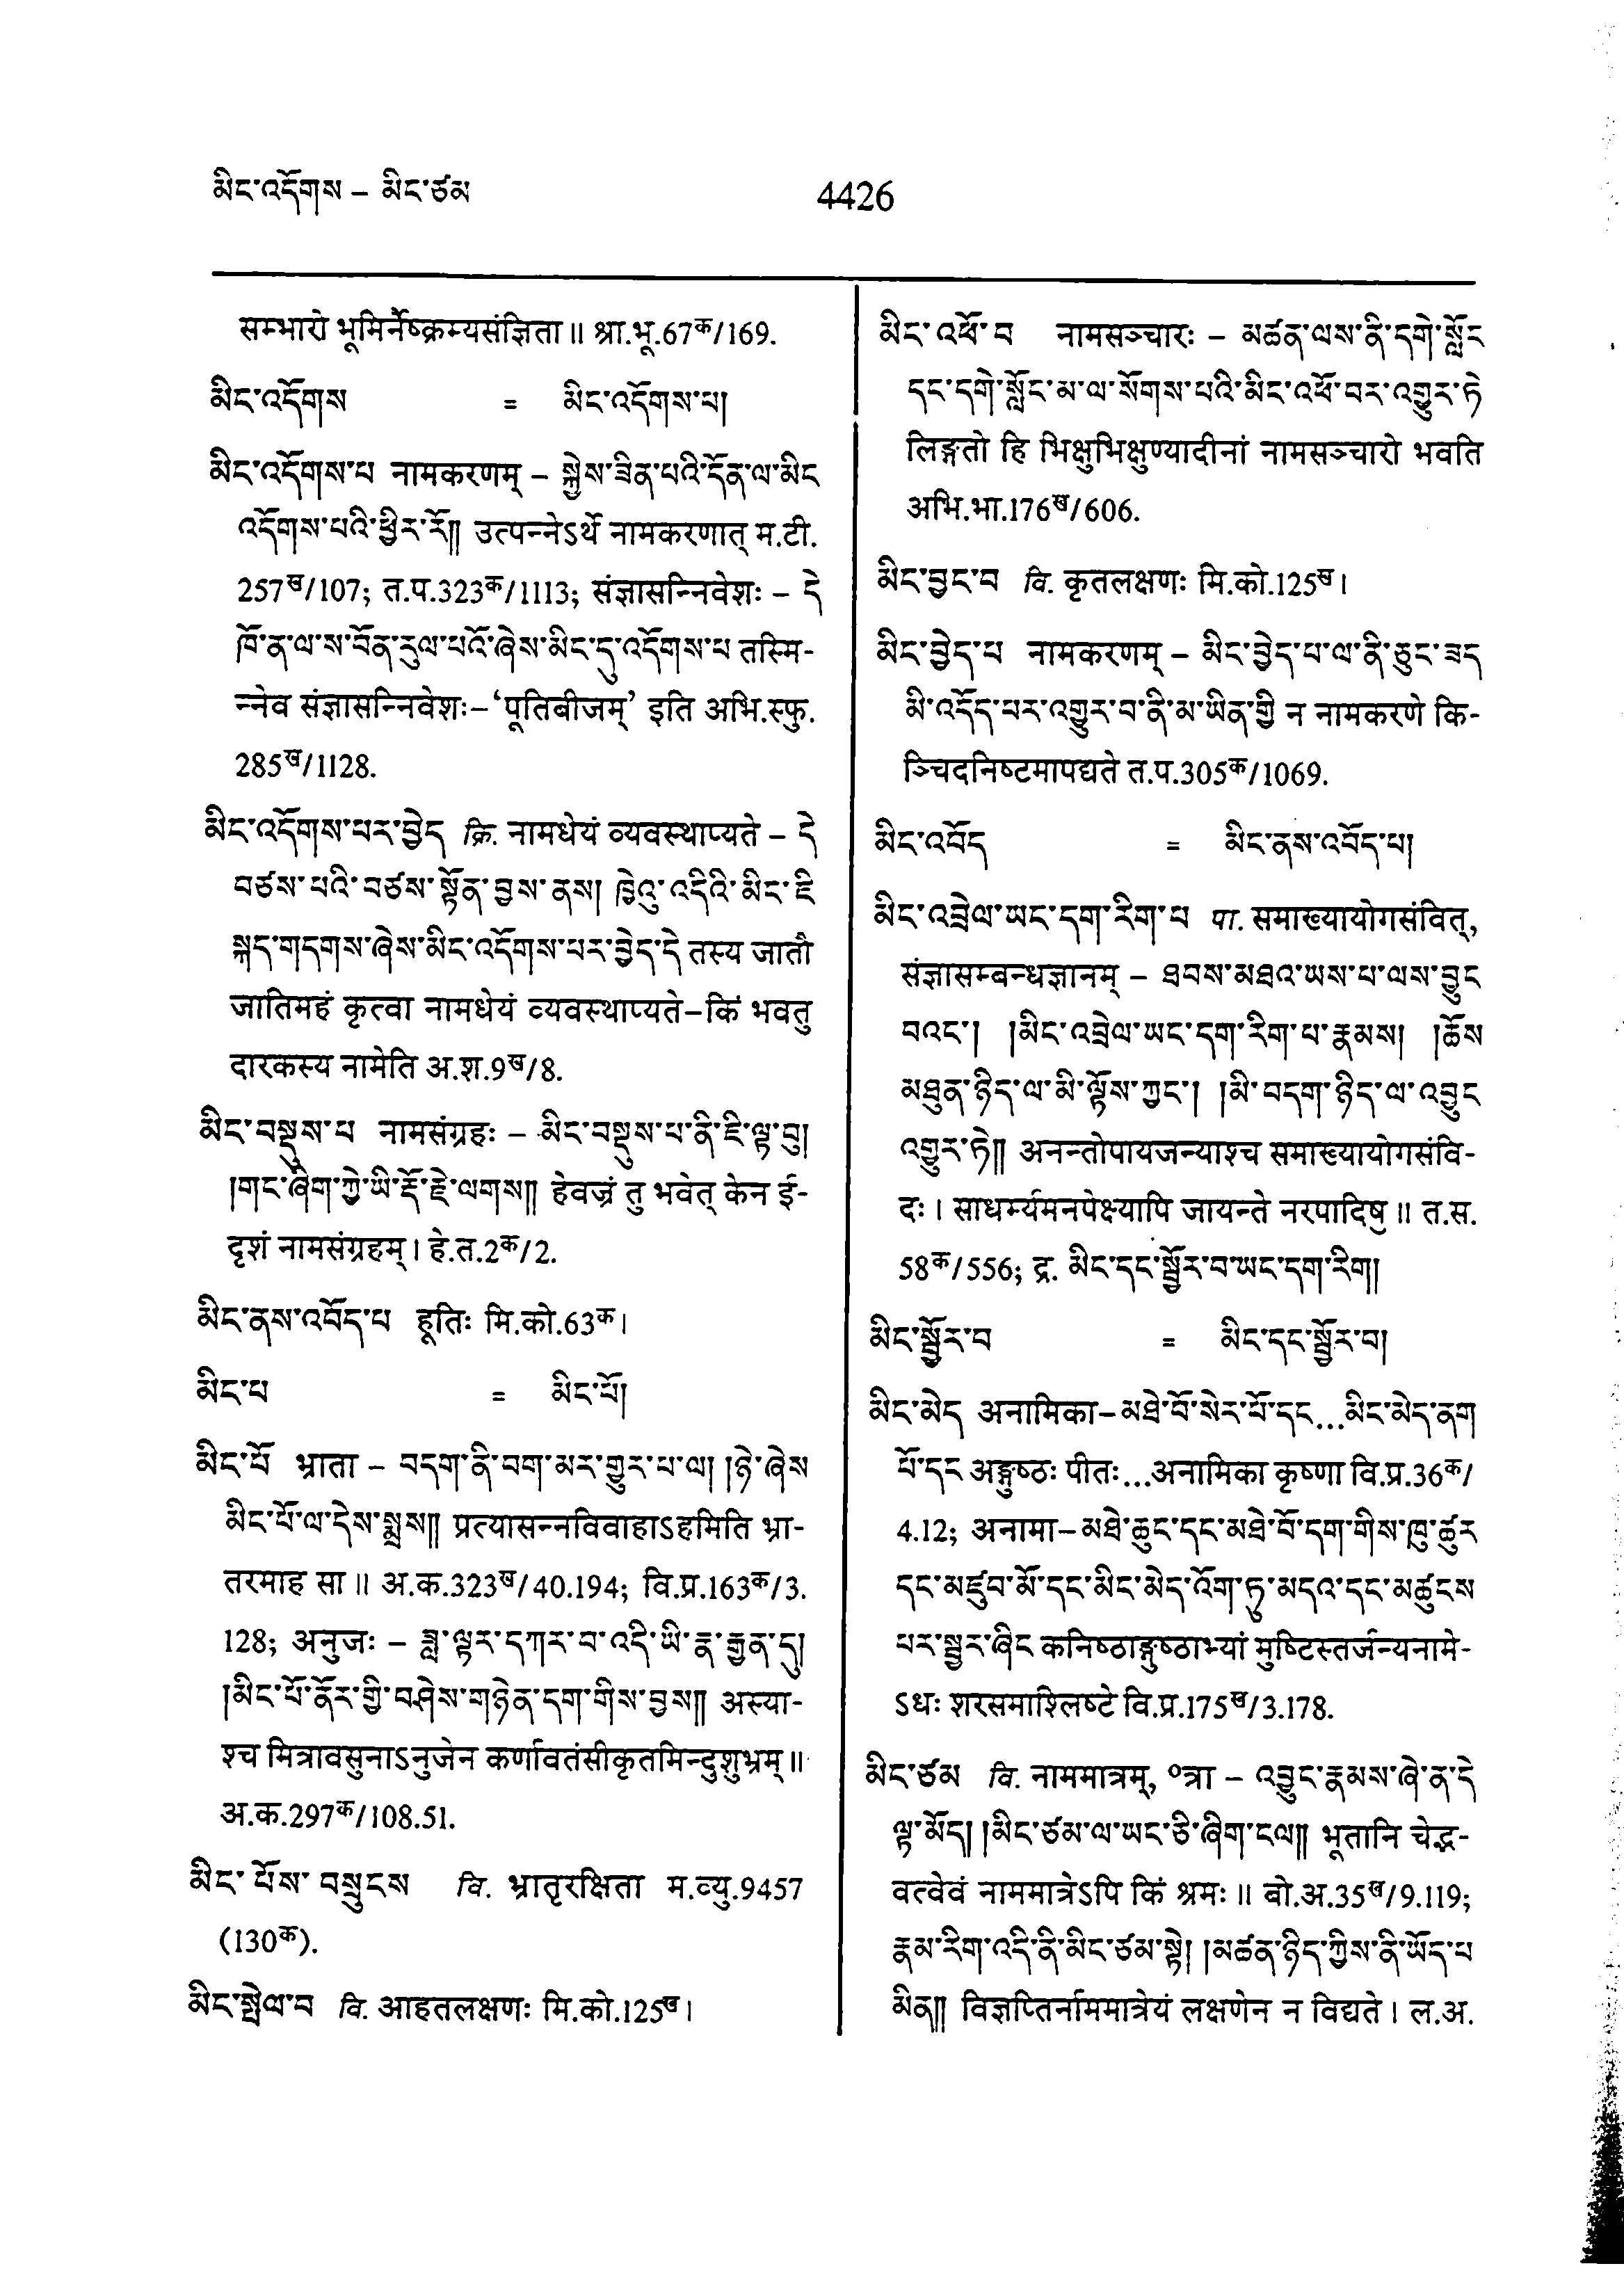 མིང་འདོགས – མིང་ཙམ
4426
सम्भारो भूमिर्नैष्क्रम्यसंज्ञिता॥ श्रा.भू.67क/169.
མིང་འདོགས = མིང་འདོགས་པ།
མིང་འདོགས་པ नामकरणम् – སྐྱེས་ཟིན་པའི་དོན་ལ་མིང
འདོགས་པའི་ཕྱིར་རོ།། उत्पन्नेऽर्थे नामकरणात् म.टी.
257ख/107; त.प.323क/1113; संज्ञासन्निवेशः – དེ
ཁོ་ན་ལ་ས་བོན་རུལ་པའོ་ཞེས་མིང་དུ་འདོགས་པ तस्मि-
न्नेव संज्ञासन्निवेशः–‘पूतिबीजम्’ इति अभि.स्फु.
285ख/1128.
མིང་འདོགས་པར་བྱེད क्रि. नामधेयं व्यवस्थाप्यते – དེ
བཙས་པའི་བཙས་སྟོན་བྱས་ནས། ཁྱེའུ་འདིའི་མིང་ཇི
སྐད་གདགས་ཞེས་མིང་འདོགས་པར་བྱེད་དེ तस्य जातौ
जातिमहं कृत्वा नामधेयं व्यवस्थाप्यते–किं भवतु
दारकस्य नामेति अ.श.9ख/8.
མིང་བསྡུས་པ नामसंग्रहः – མིང་བསྡུས་པ་ནི་ཇི་ལྟ་བུ།
།གང་ཞིག་ཀྱེ་ཡི་རྡོ་རྗེ་ལགས།། हेवज्रं तु भवेत् केन ई-
दृशं नामसंग्रहम्। हे.त.2क/2.
མིང་ནས་འབོད་པ हूतिः मि.को.63क।
མིང་པ = མིང་པོ།
མིང་པོ भ्राता – བདག་ནི་བག་མར་གྱུར་པ་ལ། །ཉེ་ཞེས
མིང་པོ་ལ་དེས་སྨྲས།། प्रत्यासन्नविवाहाऽहमिति भ्रा-
तरमाह सा॥ अ.क.323ख/40.194; वि.प्र.163क/3.
128; अनुजः – ཟླ་ལྟར་དཀར་བ་འདི་ཡི་རྣ་རྒྱན་དུ།
།མིང་པོ་ནོར་གྱི་བཤེས་གཉེན་དག་གིས་བྱས།། अस्या-
श्च मित्रावसुनाऽनुजेन कर्णावतंसीकृतमिन्दुशुभ्रम्॥
अ.क.297क/108.51.
མིང་པོས་བསྲུངས वि. भ्रातृरक्षिता म.व्यु.9457
(130क).
མིང་སྤྲེལ་བ वि. आहतलक्षणः मि.को.125ख।
མིང་འཕོ་བ नामसञ्चारः – མཚན་ལས་ནི་དགེ་སློང
དང་དགེ་སློང་མ་ལ་སོགས་པའི་མིང་འཕོ་བར་འགྱུར་ཏེ
लिङ्गतो हि भिक्षुभिक्षुण्यादीनां नामसञ्चारो भवति
अभि.भा.176ख/606.
མིང་བྱང་བ वि. कृतलक्षणः मि.को.125ख।
མིང་བྱེད་པ नामकरणम् – མིང་བྱེད་པ་ལ་ནི་ཅུང་ཟད
མི་འདོད་པར་འགྱུར་བ་ནི་མ་ཡིན་གྱི न नामकरणे कि-
ञ्चिदनिष्टमापद्यते त.प.305क/1069.
མིང་འབོད = མིང་ནས་འབོད་པ།
མིང་འབྲེལ་ཡང་དག་རིག་པ पा. समाख्यायोगसंवित्,
संज्ञासम्बन्धज्ञानम् – ཐབས་མཐའ་ཡས་པ་ལས་བྱུང
བའང་། །མིང་འབྲེལ་ཡང་དག་རིག་པ་རྣམས། །ཆོས
མཐུན་ཉིད་ལ་མི་ལྟོས་ཀྱང་། །མི་བདག་ཉིད་ལ་འབྱུང
འགྱུར་ཏེ།། अनन्तोपायजन्याश्च समाख्यायोगसंवि-
दः। साधर्म्यमनपेक्ष्यापि जायन्ते नरपादिषु॥ त.स.
58क/556; द्र. མིང་དང་སྦྱོར་བ་ཡང་དག་རིག།
མིང་སྦྱོར་བ = མིང་དང་སྦྱོར་བ།
མིང་མེད अनामिका–མཐེ་བོ་སེར་པོ་དང...མིང་མེད་ནག
པོ་དང अङ्गुष्ठः पीतः...अनामिका कृष्णा वि.प्र.36क/
4.12; अनामा–མཐེ་ཆུང་དང་མཐེ་བོ་དག་གིས་ཁུ་ཚུར
དང་མཛུབ་མོ་དང་མིང་མེད་འོག་ཏུ་མདའ་དང་མཚུངས
པར་སྦྱར་ཞིང कनिष्ठाङ्गुष्ठाभ्यां मुष्टिस्तर्जन्यनामे-
ऽधः शरसमाश्लिष्टे वि.प्र.175ख/3.178.
མིང་ཙམ वि. नाममात्रम्, ०त्रा – འབྱུང་རྣམས་ཞེ་ན་དེ
ལྟ་མོད། །མིང་ཙམ་ལ་ཡང་ཅི་ཞིག་ངལ།། भूतानि चेद्भ-
वत्वेवं नाममात्रेऽपि किं श्रमः॥ बो.अ.35ख/9.119;
རྣམ་རིག་འདི་ནི་མིང་ཙམ་སྟེ། །མཚན་ཉིད་ཀྱིས་ནི་ཡོད་པ
མིན།། विज्ञप्तिर्नाममात्रेयं लक्षणेन न विद्यते। ल.अ.